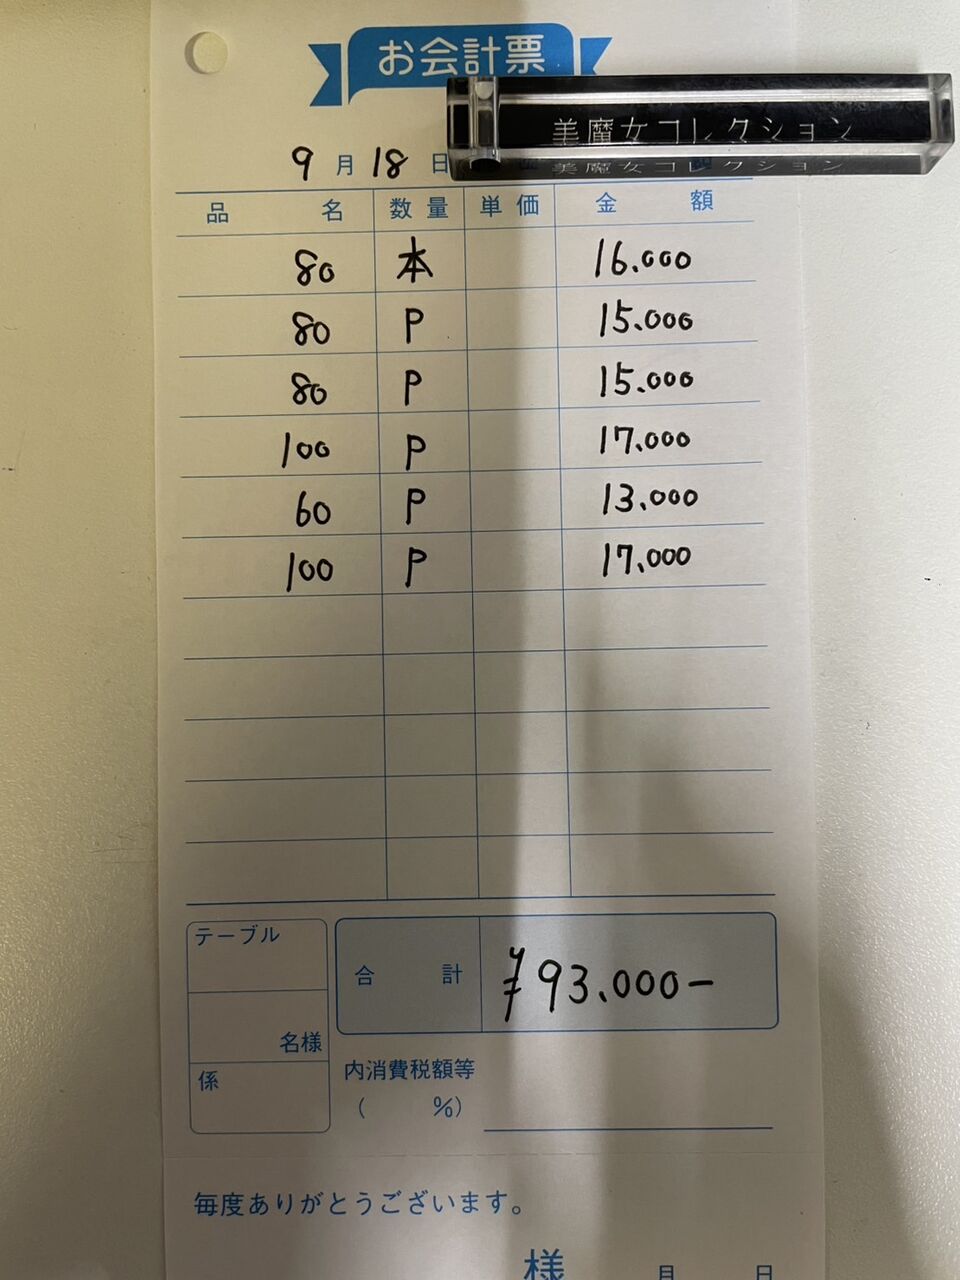 お会計票
美魔女コレクション
美魔女コレクション
9月18日
品名 数量 単価 金額
80 本 16.000
80 P 15.000
80 P 15.000
100 P 17.000
60 P 13.000
100 P 17.000
テーブル
名様
係
合計 ¥93.000-
内消費税額等
( %)
毎度ありがとうございます。
様 月 日